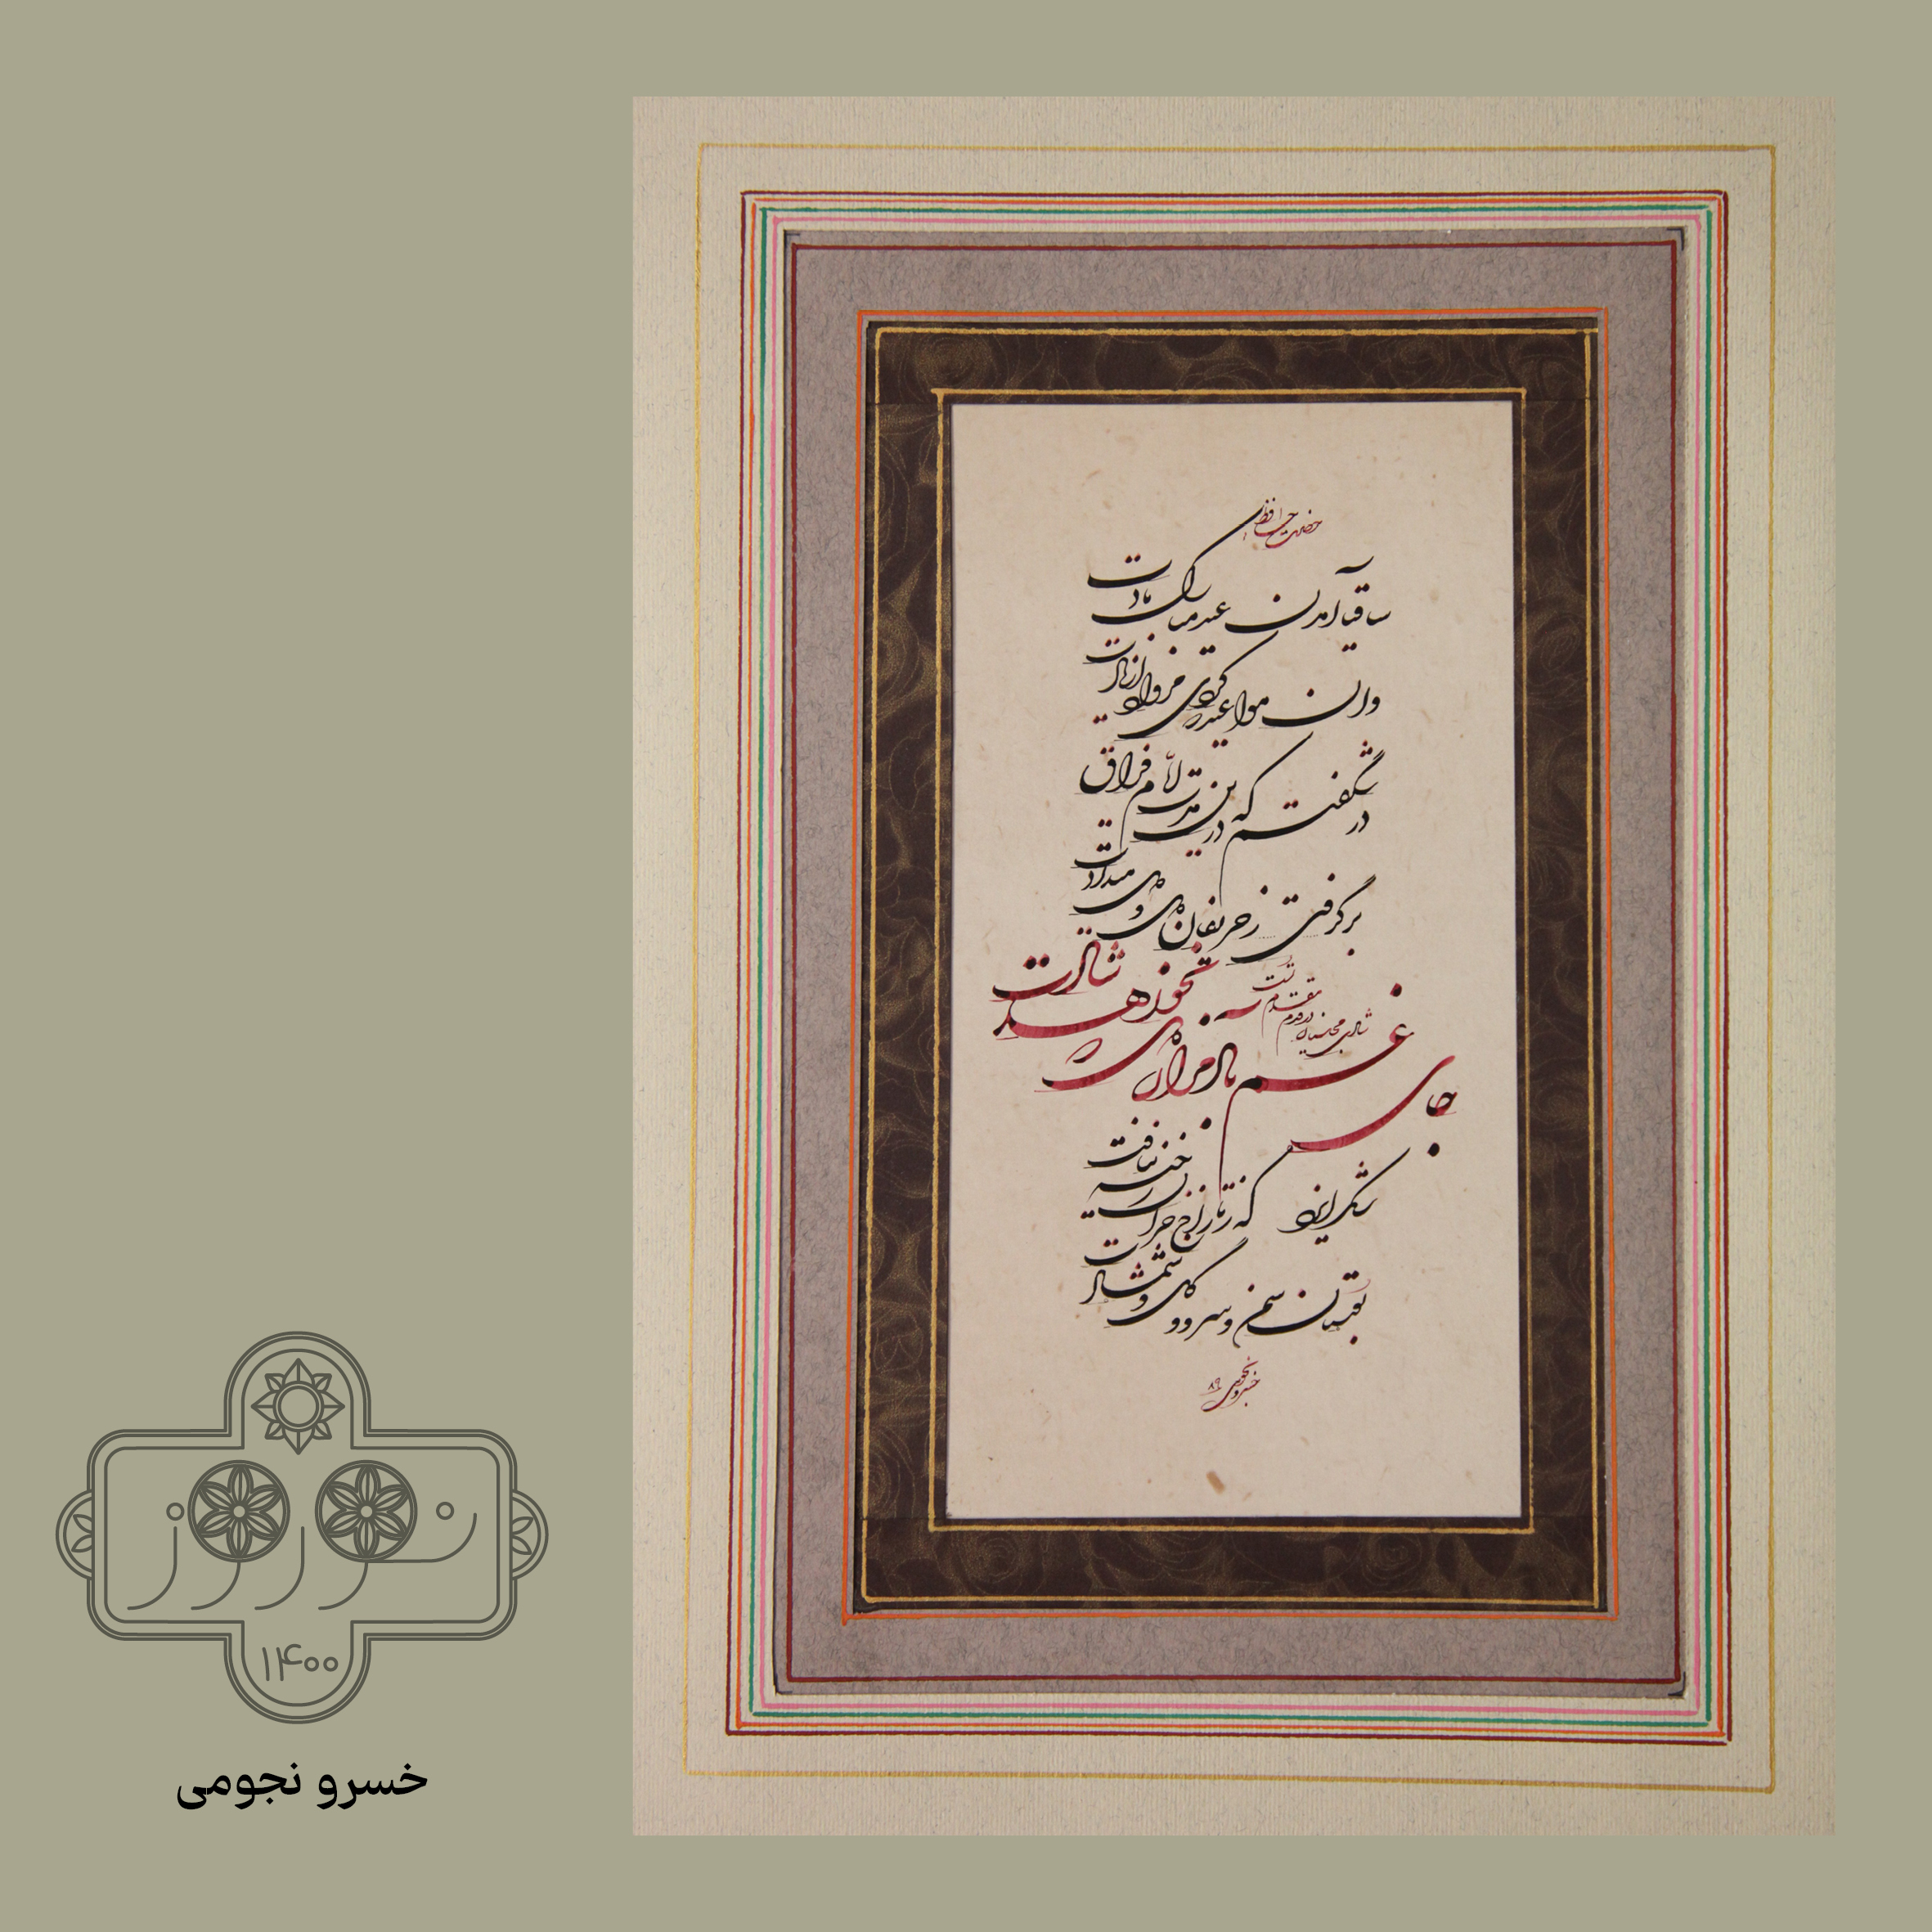 حضرت حافظ
ساقیا آمدن عید مبارک بادت
وان مواعید که کردی مرواد از یادت
در شگفتم که درین مدت ایام فراق
برگرفتی ز حریفان دل و دل میدادت
شادی مجلسیان در قدم و مقدم تست
جای غم باد مر آن دل که نخواهد شادت
شکر ایزد که ز تاراج خزان رخنه نیافت
بوستان سمن و سرو و گل و شمشادت
خسرو نجومی ۸۹
نوروز
۱۴۰۰
خسرو نجومی